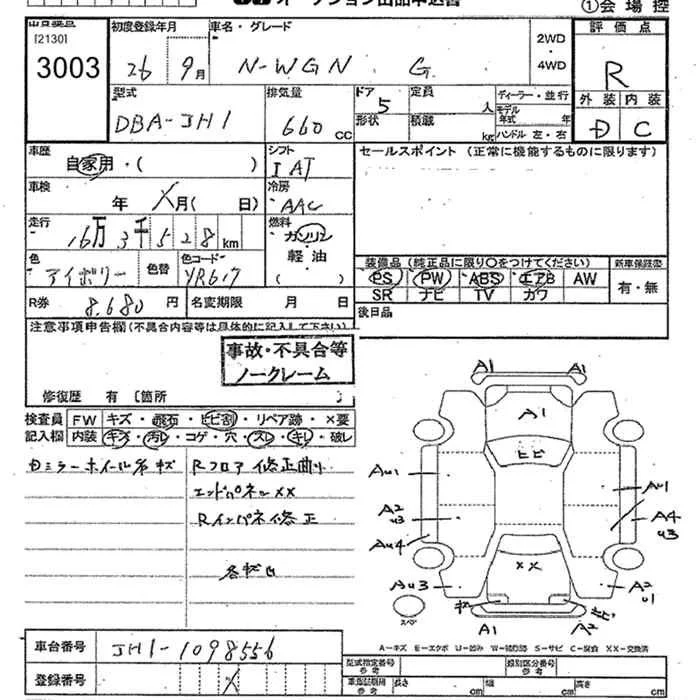 ①会場控
[2130]
3003
初度登録年月
26 9月
車名・グレード
N-WGN G
2WD
・
4WD
評価点
R
外装 内装
D C
型式
DBA-JH1
排気量
660 CC
ドア
5
形状
定員
人
積載
kg
ディーラー・並行
モデル年式 年
ハンドル 左・右
車歴
自家用・( )
シフト
IAT
セールスポイント (正常に機能するものに限ります)
車検
年 X月( 日)
冷房
AAC
走行
16万3千528km
燃料
ガソリン
軽油
( )
色
アイボリー
色替
色コード
YR617
装備品(純正品に限り○をつけてください)
新車保証書
PS PW ABS エアB AW
SR ナビ TV カワ
有・無
R券 8.680 円
名変期限 月 日
後日品
注意事項申告欄(不具合内容等は具体的に記入して下さい)
事故・不具合等
ノークレーム
修復歴 有 〔箇所 〕
検査員記入欄
FW キズ・飛石・ヒビ割・リペア跡・×要
内装 キズ・汚レ・コゲ・穴・スレ・キレ・破レ
ミラーホイール名キズ
Rフロア修正曲り
エンドパネルXX
Rインパネ修正
A1 A1
A1
ヒビ
Au1 Au1
A2 u3
A4 u3
Au4
XX
Au3
A2 u1
スペア
A1 A2
ヒビ
A-キズ E-エクボ U-凹み W-補修跡 S-サビ C-腐食 XX-交換済
車台番号 JH1-1098556
登録番号 X
型式指定番号 参考
類別区分番号 参考
長さ cm
幅 cm
高さ cm